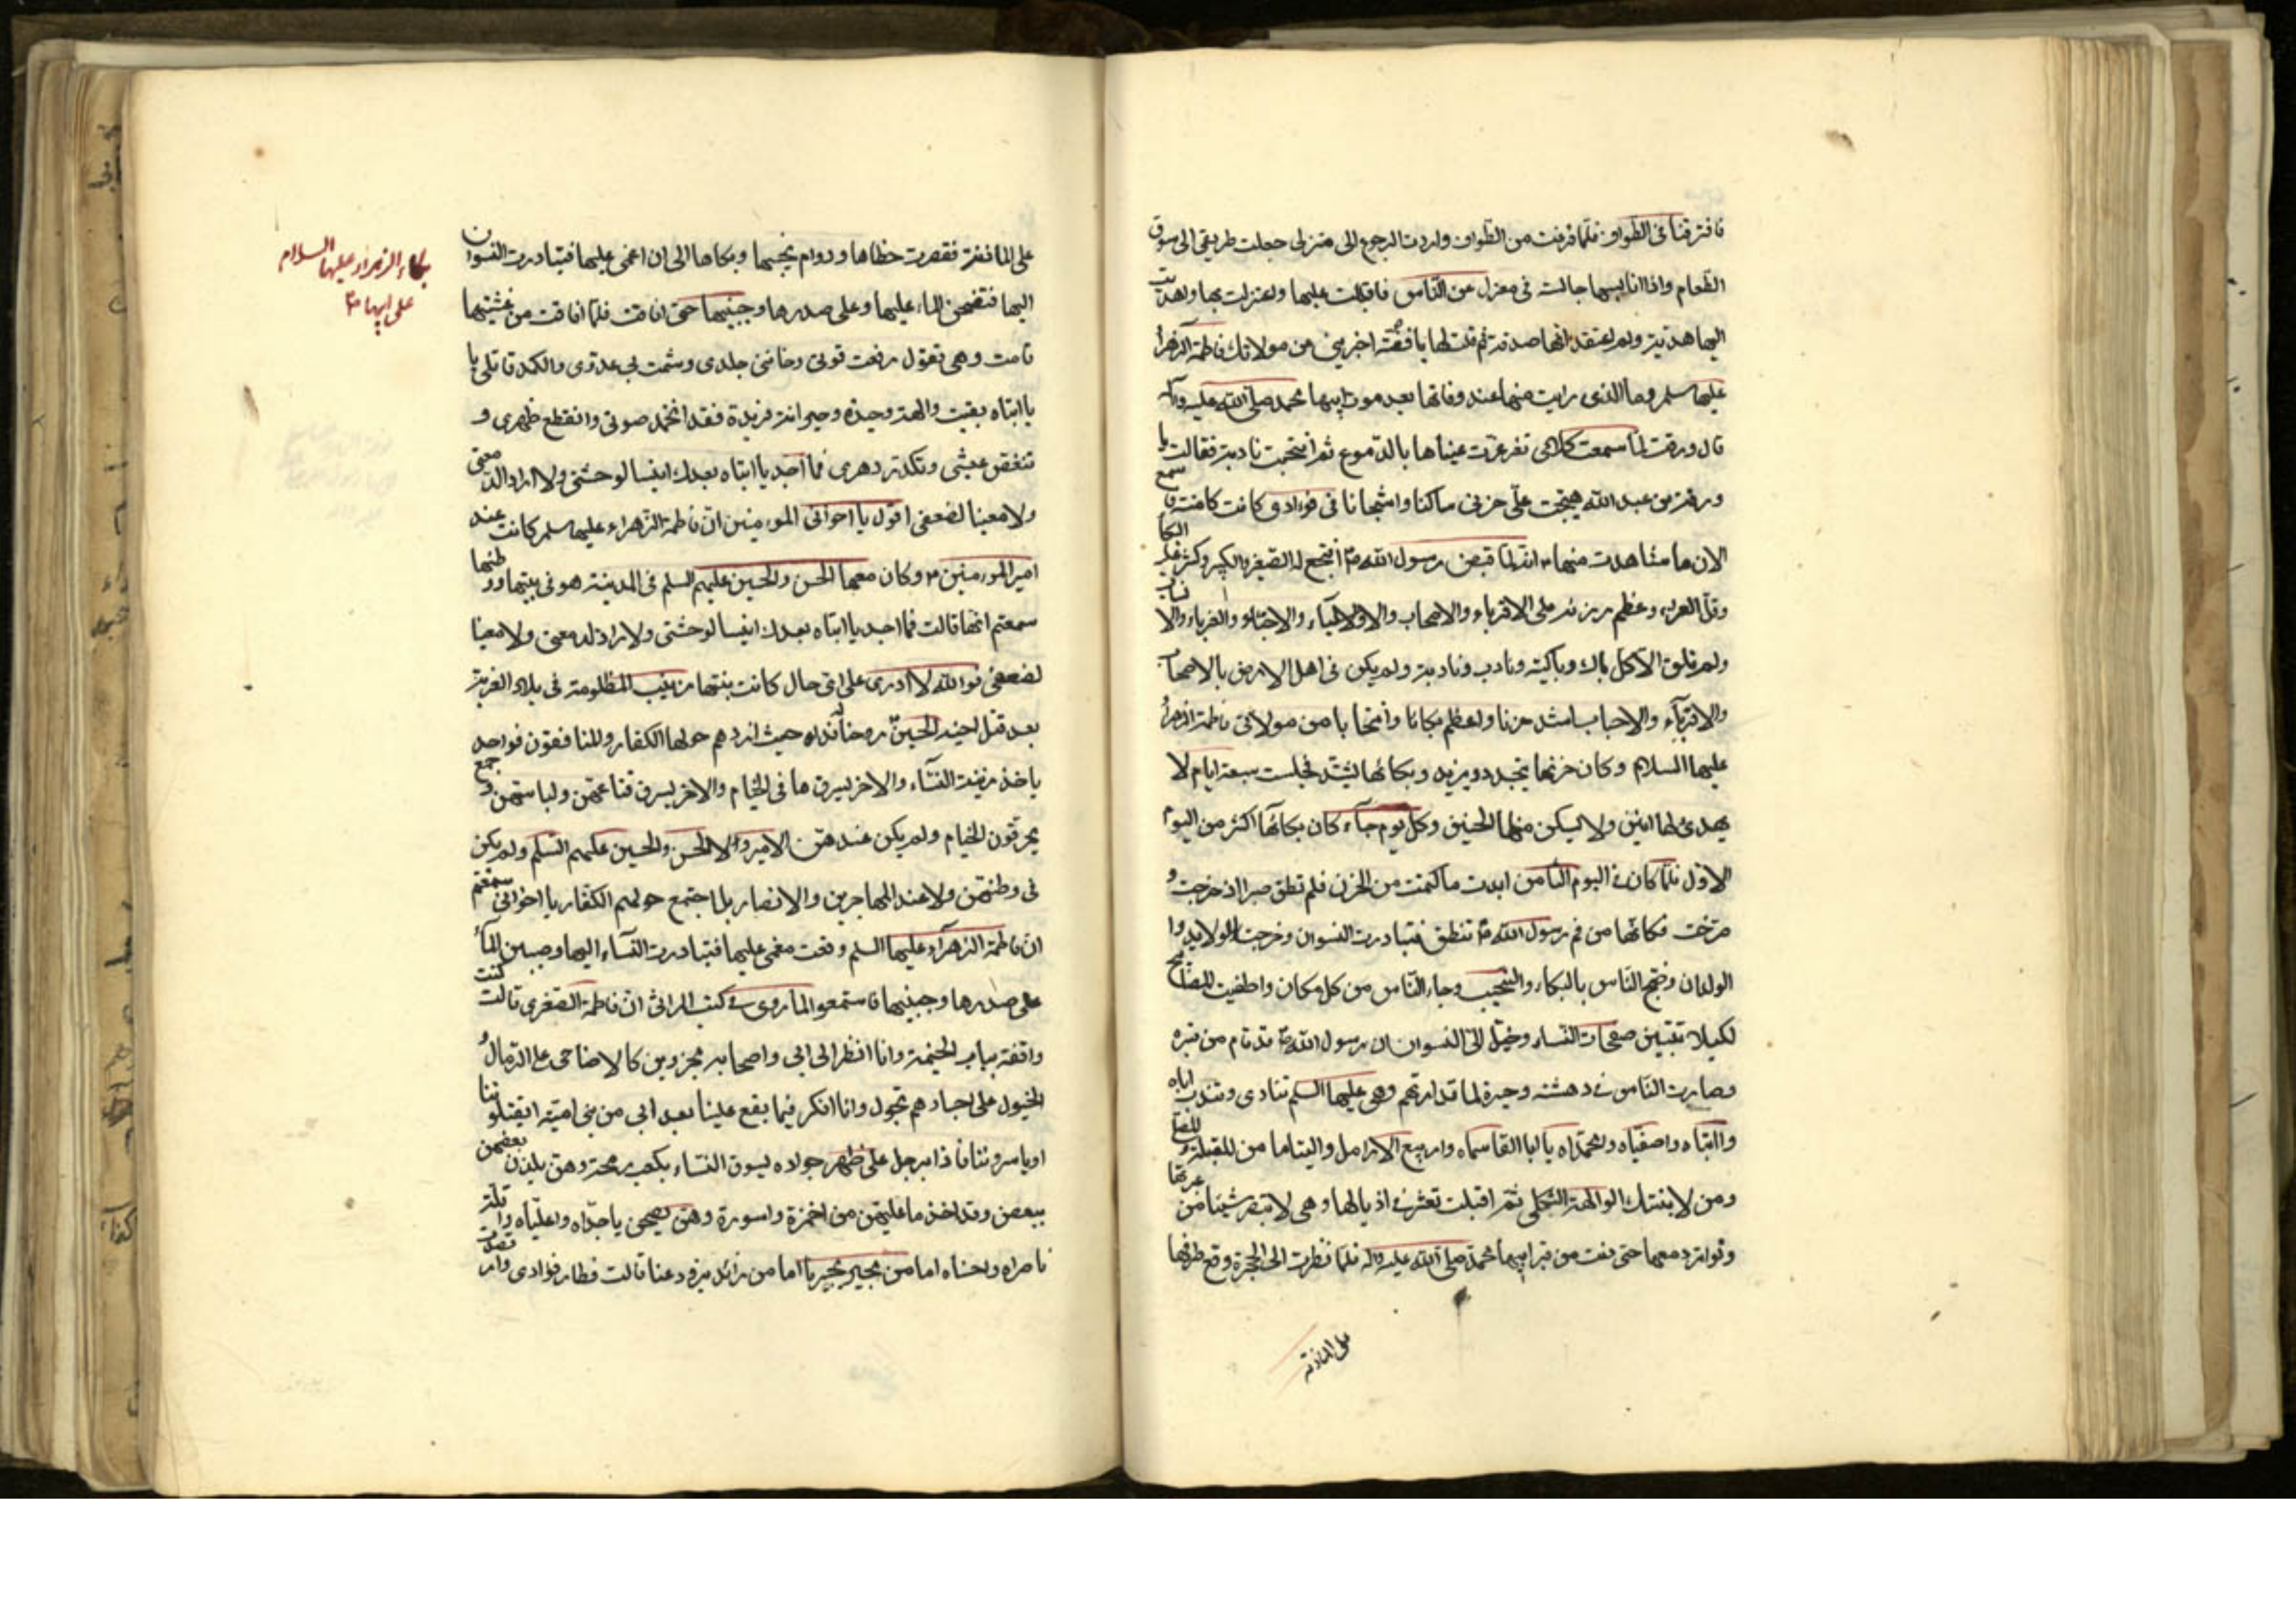 فافترقنا فى الطواف فلما فرغت من الطواف واردت الرجوع الى منزلى جعلت طريقى الى سوق
الطعام واذا انا بها جالسة فى معزل عن الناس فاقبلت عليها واعتزلت بها واهديت
اليها هدية ولم اعتقد انها صدقة ثم قلت لها يا فضة اخبرينى عن مولاتك فاطمة الزهراء
عليها سلم وما الذى رايت منها عند وفاتها بعد موت ابيها محمد صلى الله عليه وآله
قال ورقة لما سمعت كلامى تغرغرت عيناها بالدموع ثم انتحبت نادبة فقالت يا
ورقة بن عبد الله هيجت على حزنى ساكنا واشجانا فى فوادى كانت كامنة فاسمع
الان ما شاهدت منها انه لما قبض رسول الله ص افتجع له الصغير والكبير وكثر عليه البكا
وقل العزاء وعظم رزئه على الاقرباء والاصحاب والاولياء والاحباب والغرباء والانساب
ولم تلق الا كل باك وباكية ونادب ونادبة ولم يكن فى اهل الارض بالاصحاب
والاقرباء والاحباب اشد حزنا واعظم بكانا وانتحابا من مولاتى فاطمة الزهراء
عليها السلام وكان حزنها يتجدد ويزيد وبكائها يشتد فجلست سبعة ايام لا
يهدئ لها انين ولا يسكن منها الحنين وكل يوم جاء كان بكائها اكثر من اليوم
الاول فلما كان فى اليوم الثامن ابدت ما كتمت من الحزن فلم تطق صبرا اذ خرجت و
صرخت فكانها من فم رسول الله ص تنطق فتبادرت النسوان وخرجت الولايد وا
الولدان وضج الناس بالبكاء والنحيب وجاء الناس من كل مكان واطفيت المصابيح
لكيلا تتبين صفحات النساء وخيل الى النسوان ان رسول الله ص قد قام من قبره
وصارت الناس فى دهشة وحيرة لما قد ارهقهم وهى عليها السلم تنادى وتندب اباه
وا ابتاه واصفياه وامحمداه يا ابا القاسماه واربيع الارامل واليتاما من للقبلة والمصلى
ومن لابنتك الوالهة الثكلى ثم اقبلت تعثر فى اذيالها وهى لا تبصر شيئا من عبرتها
وتواتر دمعها حتى دنت من قبر ابيها محمد صلى الله عليه واله فلما نظرت الى الحجرة وقع طرفها
على الماذنة
على الماذنة فقصرت خطاها ودوام نحيبها وبكاها الى ان اغمى عليها فتبادرت النسوان
اليها فنضحن الماء عليها وعلى صدرها وجبينها حتى افاقت فلما افاقت من غشيتها
قامت وهى تقول رفعت قوتى وخاننى جلدى وشمت بى عدوى والكمد قاتلى يا
يا ابتاه بقيت والهة وحيدة وحيرانة فريدة فقد انخمد صوتى وانقطع ظهرى و
تنغص عيشى وتكدر دهرى فما اجد يا ابتاه بعدك انيسا لوحشتى ولا رادا لدمعتى
ولا معينا لضعفى اقول يا اخوانى المومنين ان فاطمة الزهراء عليها سلم كانت عند
امير المومنين ع وكان معها الحسن والحسين عليهم السلم فى المدينة هو فى بيتها ووطنها
سمعتم انها قالت فما اجد يا ابتاه بعدك انيسا لوحشتى ولا رادا لدمعتى ولا معينا
لضعفى فوالله لا ادرى على اى حال كانت بنتها زينب المظلومة فى بلاد الغربة
بعد قتل اخيه الحسين روحنا فداه حيث ازدهم حولها الكفار والمنافقون فواحد
ياخذ زينة النساء والاخر يسرق ما فى الخيام والاخر يسرق قناعهن ولباسهن وجمع
يحرقون الخيام ولم يكن عندهن الامير ولا الحسن والحسين عليهم السلم ولم يكن
فى وطنهن ولا عند المهاجرين والانصار بل اجتمع حولهم الكفار يا اخوانى سمعتم
ان فاطمة الزهراء عليها السلم وقعت مغمى عليها فتبادرت النساء اليها وصببن الماء
على صدرها وجبينها فاستمعوا لما روى فى كتب المراثى ان فاطمة الصغرى قالت كنت
واقفة بباب الخيمة وانا انظر الى ابى واصحابه مجزرين كالاضاحى على الرمال و
الخيول على اجسادهم تجول وانا افكر فيما يقع علينا بعد ابى من بنى امية ايقتلوننا
او ياسروننا فاذا برجل على ظهر جواده يسوق النساء بكعب رمحه وهن يلذن بعضهن
ببعض وقد اخذ ما عليهن من اخمرة واسورة وهن يصحن يا جداه واعلياه واقلة
ناصراه واحسناه اما من مجير يجيرنا اما من زائد يزود عنا قالت فطار فؤادى وارتعدت
بكاء الزهراء عليها السلام
على ابيها ص